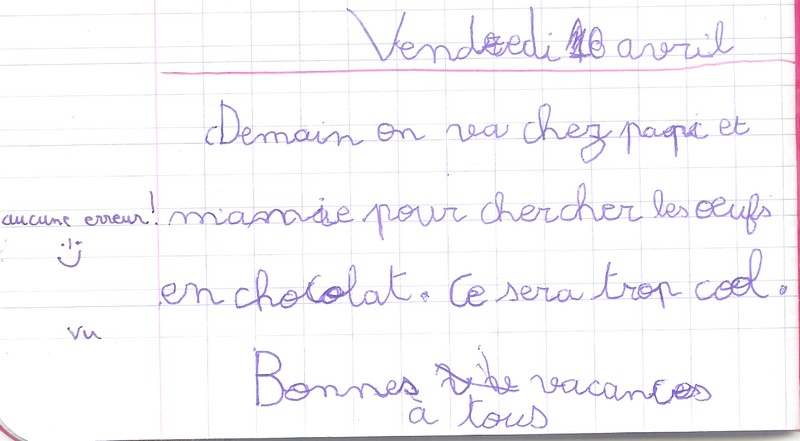 Vendredi 10 avril
Demain on va chez papi et
aucune erreur! mamie pour chercher les oeufs
:)
en chocolat. Ce sera trop cool.
vu
Bonnes vacances
à tous